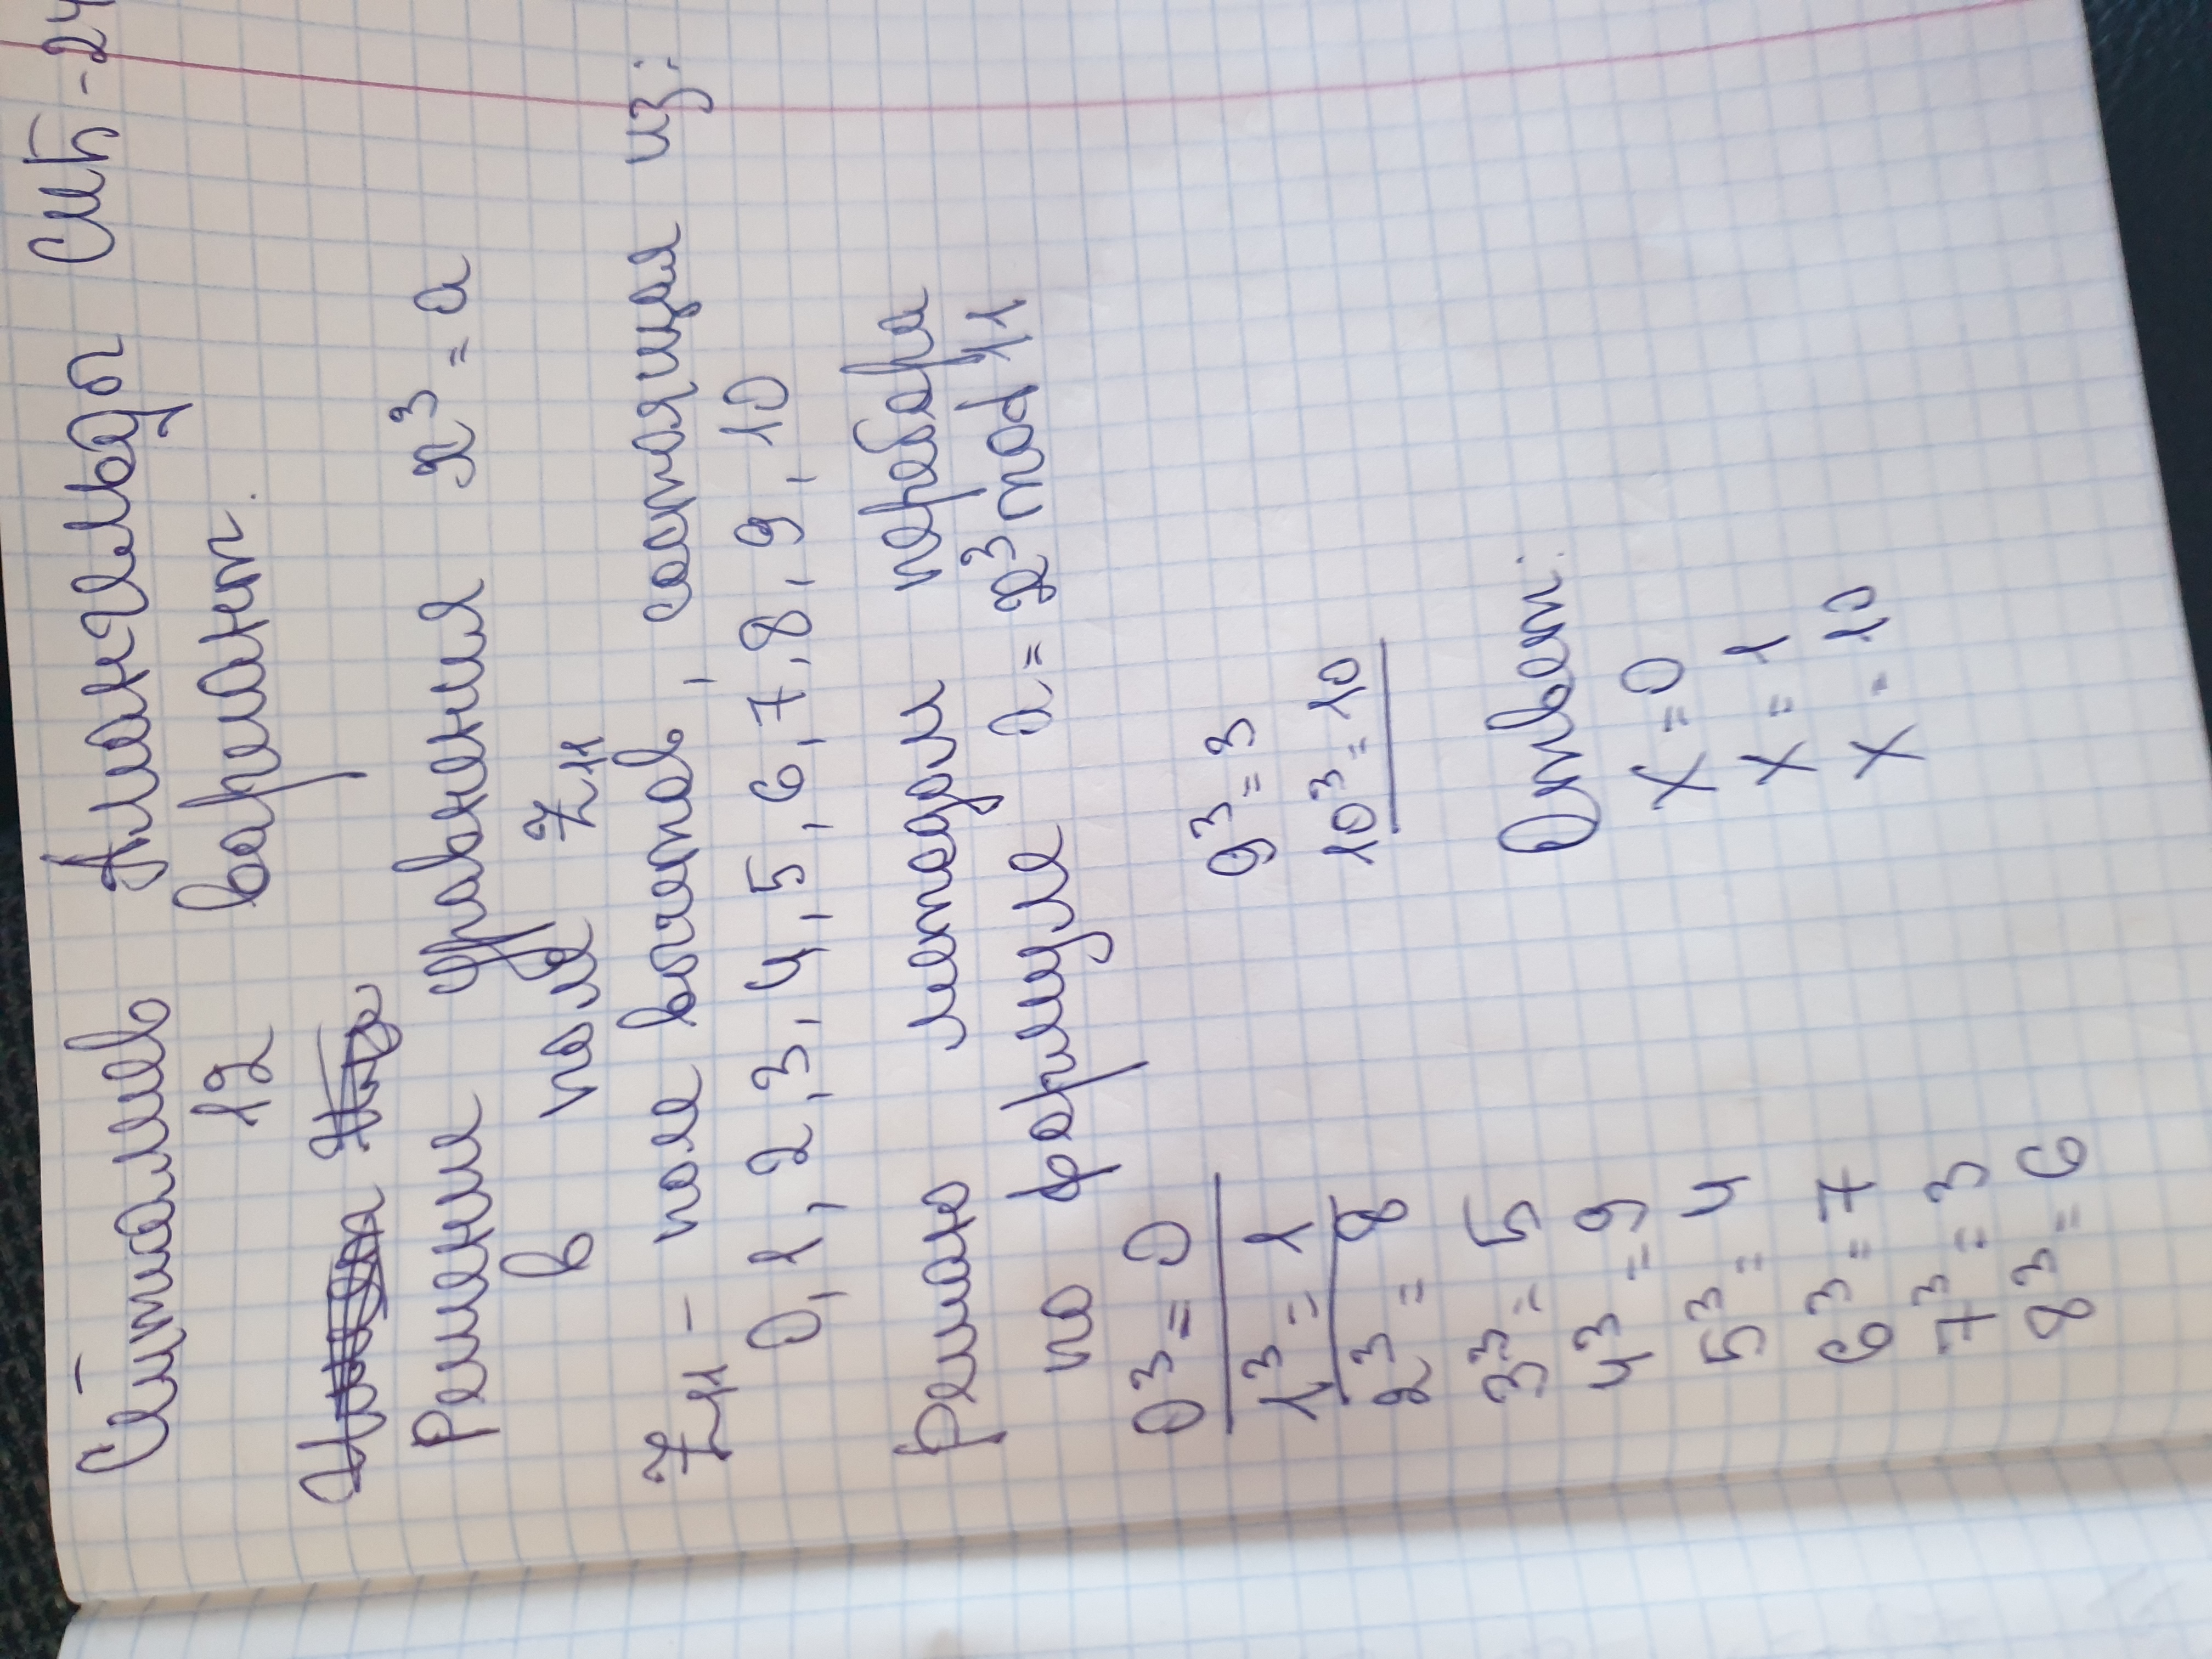 Сейткалиев Амангельды СИБ-24
12 вариант.
Решение уравнения x³ = a
в поле Z₁₁
Z₁₁ - поле вычетов, состоящая из:
0, 1, 2, 3, 4, 5, 6, 7, 8, 9, 10
Решаю методом перебора
по формуле a = x³ mod 11
0³ = 0
1³ = 1
2³ = 8
3³ = 5
4³ = 9
5³ = 4
6³ = 7
7³ = 3
8³ = 6
9³ = 3
10³ = 10
Ответ:
x = 0
x = 1
x = 10